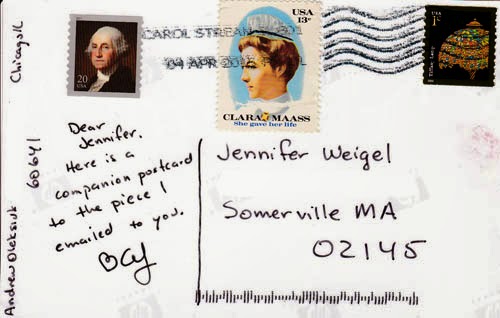 20
USA
CAROL STREAM
09 APR
USA
13c
CLARA MAASS
She gave her life
USA
1¢
Tiffany Lamp
Dear
Jennifer,
Here is a
companion postcard
to the piece I
emailed to you.
Jennifer Weigel
Somerville MA
02145
Andrew Oleksiuk
60641